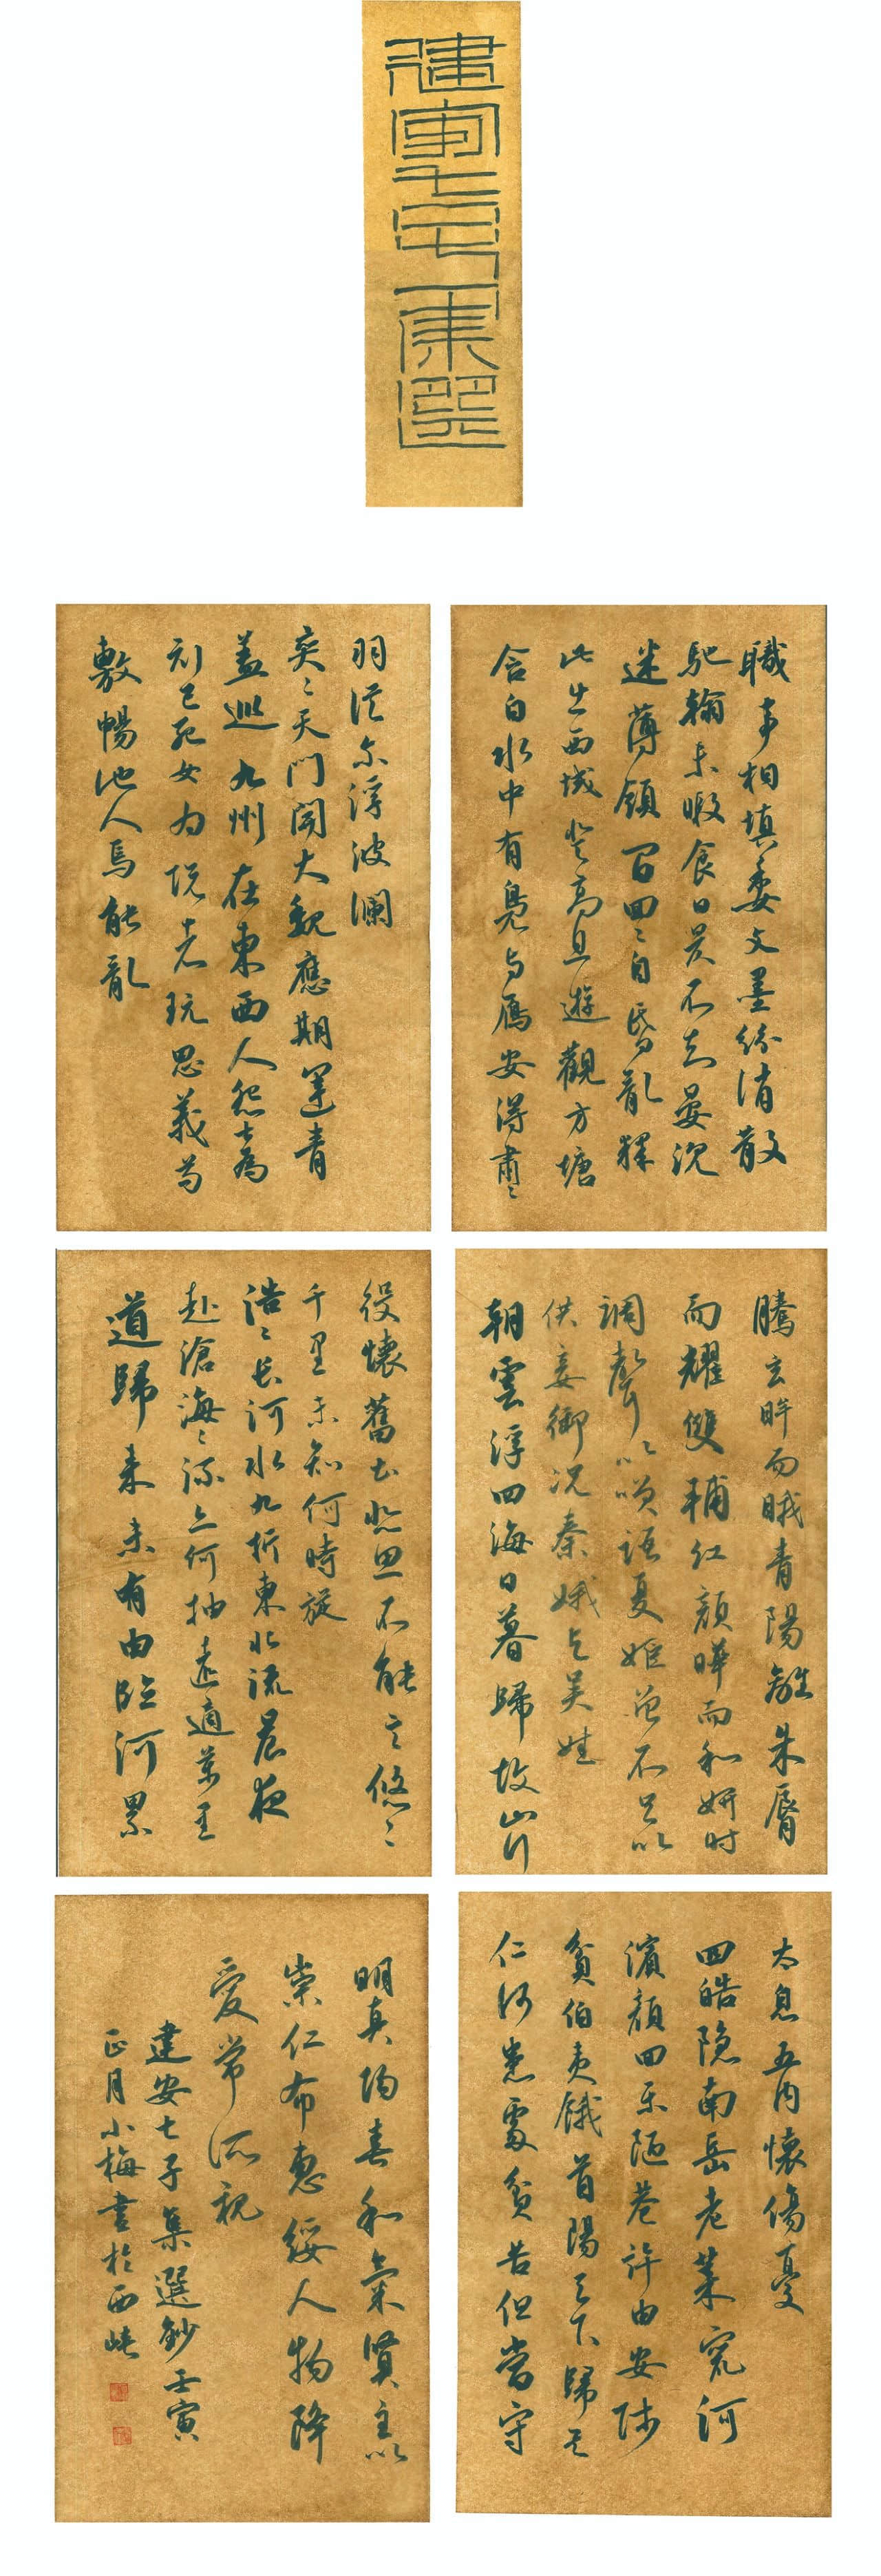 建安七子集選
職事相填委文墨紛消散
馳翰未暇食日昃不知晏沉
迷薄領間回〻自昏亂釋
此出西域登高且遊觀方塘
含白水中有鳧与鴈安得肅〻
羽從尔浮波瀾
奕〻天門開大魏應期運青
蓋巡九州在東西人怨士為
知己死女為悅者玩恩義苟
敷暢他人焉能亂
騰玄眸而睋青陽離朱脣
而耀雙輔紅顏曄而和妍时
調聲以笑語夏姬曾不足以
供妾御况秦娥与吴娃
朝雲浮四海日暮歸故山行
役懷舊土悲思不能言悠〻
千里未知何時旋
浩〻長河水九折東北流晨夜
赴滄海〻流亦何抽遠適萬里
道歸來未有由臨河累
太息五内懷傷憂
四皓隐南岳老萊竄河
濱顔回乐陋巷许由安賤
貧伯夷餓首陽天下歸其
仁何患處貧苦但當守
明真陽春和氣賢主以
崇仁布惠綏人物降
愛常所親
建安七子集選鈔壬寅
正月小梅書於西峽